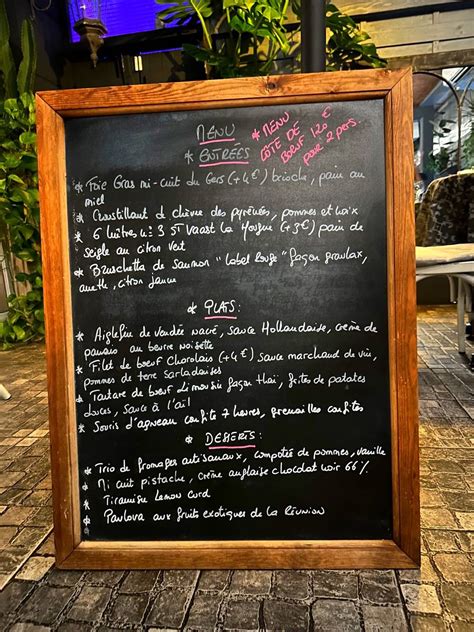 MENU
* MENU
CÔTE DE
BŒUF 120 €
pour 2 pers.
* ENTRÉES
* Foie Gras mi-cuit du Gers (+4€) brioche, pain au
miel
* Croustillant d chèvre des pyrénées, pommes et noix
* 6 huîtres n: 3 ST VAAST La Hougue (+3€) pain de
seigle au citron vert
* Bruschetta de Saumon "Label Rouge" façon gravlax,
aneth, citron jaune
* PLATS:
* Aiglefin de vendée nacré, sauce Hollandaise, crème de
panais au beurre noisette
* Filet de bœuf Charolais (+4€) sauce marchand de vin,
pommes de terre sarladaises
* Tartare de bœuf Limousin façon thaï, frites de patates
douces, sauce à l'ail
* Souris d'agneau confite 7 heures, grenailles confites
* DESSERTS:
* Trio de fromages artisanaux, compotée de pommes, vanille
* Mi cuit pistache, crème anglaise chocolat noir 66%
* Tiramisu lemon curd
* Pavlova aux fruits exotiques de la Réunion